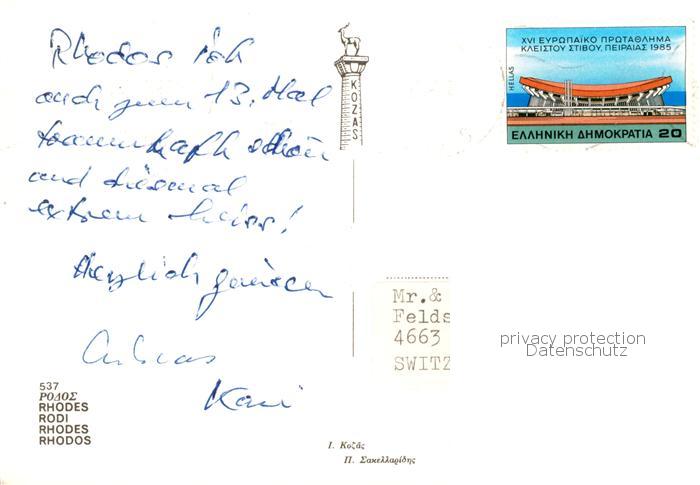 Rhodos ist
auch zum 13. Mal
traumhaft schön
und diesmal
extrem heiss!
Herzlich grüssen
Andreas
KOZAS
XVI ΕΥΡΩΠΑΪΚΟ ΠΡΩΤΑΘΛΗΜΑ
ΚΛΕΙΣΤΟΥ ΣΤΙΒΟΥ, ΠΕΙΡΑΙΑΣ 1985
HELLAS
ΕΛΛΗΝΙΚΗ ΔΗΜΟΚΡΑΤΙΑ 20
Mr.&
Felds
4663
SWITZ
privacy protection
Datenschutz
537
ΡΟΔΟΣ
RHODES
RODI
RHODES
RHODOS
Ι. Κοζᾶς
Π. Σακελλαρίδης